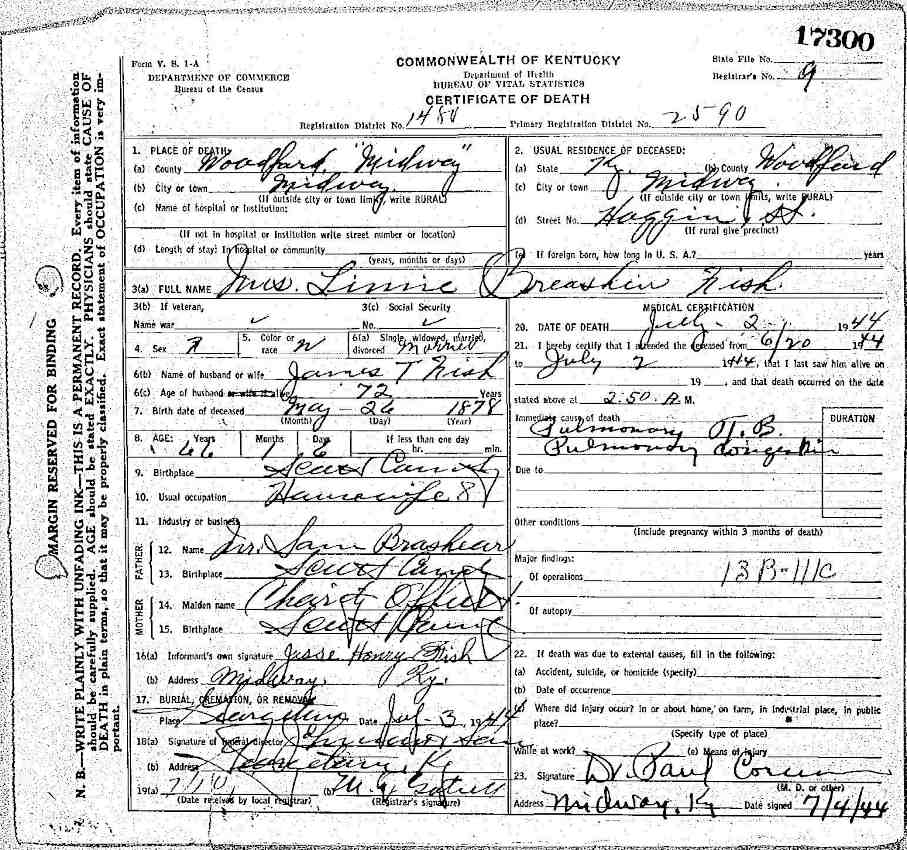 17300
Form V. S. 1-A
DEPARTMENT OF COMMERCE
Bureau of the Census
COMMONWEALTH OF KENTUCKY
Department of Health
BUREAU OF VITAL STATISTICS
CERTIFICATE OF DEATH
State File No.
Registrar's No. 9
Registration District No. 1480 Primary Registration District No. 2590
MARGIN RESERVED FOR BINDING
N. B.—WRITE PLAINLY WITH UNFADING INK—THIS IS A PERMANENT RECORD. Every item of information
should be carefully supplied. AGE should be stated EXACTLY. PHYSICIANS should state CAUSE OF
DEATH in plain terms, so that it may be properly classified. Exact statement of OCCUPATION is very im-
portant.
1. PLACE OF DEATH
(a) County Woodford "Midway"
(b) City or town Midway
(If outside city or town limits, write RURAL)
(c) Name of hospital or institution:
(If not in hospital or institution write street number or location)
(d) Length of stay: In hospital or community
(years, months or days)
2. USUAL RESIDENCE OF DECEASED:
(a) State Ky. (b) County Woodford
(c) City or town Midway
(If outside city or town limits, write RURAL)
(d) Street No. Haggin St.
(If rural give precinct)
(e) If foreign born, how long in U. S. A.? years
3(a) FULL NAME Mrs. Linnie Fish
3(b) If veteran,
Name war
3(c) Social Security
No.
4. Sex F 5. Color or race W 6(a) Single, widowed, married, divorced Married
6(b) Name of husband or wife James T Fish
6(c) Age of husband or wife if alive 72 Years
7. Birth date of deceased May - 26 1878
(Month) (Day) (Year)
8. AGE: Years Months Days If less than one day
66 1 6 hr. min.
9. Birthplace Scott County
10. Usual occupation Housewife
11. Industry or business
FATHER
12. Name Mr. Sam Brashear
13. Birthplace Scott County
MOTHER
14. Maiden name Charity
15. Birthplace Scott County
16(a) Informant's own signature Jesse Henry Fish
(b) Address Midway, Ky.
17. BURIAL, CREMATION, OR REMOVAL
Place Georgetown Date Jul - 3, 1944
18(a) Signature of funeral director
(b) Address Ky
19(a) (b)
(Date received by local registrar) (Registrar's signature)
MEDICAL CERTIFICATION
20. DATE OF DEATH July - 2 1944
21. I hereby certify that I attended the deceased from 6/20 1944
to July 2 1944, that I last saw him alive on
19 , and that death occurred on the date
stated above at 2:50 A. M.
Immediate cause of death
DURATION
Pulmonary T. B.
Pulmonary Congestion
Due to
Other conditions
(Include pregnancy within 3 months of death)
Major findings:
Of operations 13B-111C
Of autopsy
22. If death was due to external causes, fill in the following:
(a) Accident, suicide, or homicide (specify)
(b) Date of occurrence
(c) Where did injury occur? in or about home, on farm, in industrial place, in public
place?
(Specify type of place)
While at work? (e) Means of injury
23. Signature Dr. Paul
(M. D. or other)
Address Midway, Ky Date signed 7/4/44